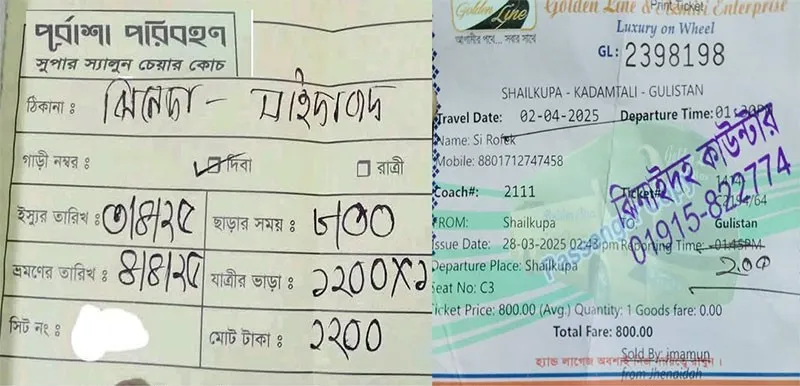 পূর্বাশা পরিবহন
সুপার স্যালুন চেয়ার কোচ
ঠিকানা ঃ ঝিনেদা -
গাড়ী নম্বর ঃ দিবা রাত্রী
ইস্যুর তারিখ ঃ ৩/৪/২৫ ছাড়ার সময় ঃ ৮/০০
ভ্রমণের তারিখ ঃ ৪/৪/২৫ যাত্রীর ভাড়া ঃ ১২০০X১
সিট নং ঃ মোট টাকা ঃ ১২০০
Print Ticket
Golden Line
Golden Line & Enterprise
আপনার পথে... সবার সাথে
Luxury on Wheel
GL: 2398198
SHAILKUPA - KADAMTALI - GULISTAN
Travel Date: 02-04-2025 Departure Time:
Name: Si Rofek
Mobile: 8801712747458
Coach#: 2111 Ticket#
FROM: Shailkupa Gulistan
Issue Date: 28-03-2025 02:43 pm Reporting Time: 01:45PM
2.00
Departure Place: Shailkupa
Seat No: C3
Ticket Price: 800.00 (Avg.) Quantity: 1 Goods fare: 0.00
Total Fare: 800.00
Sold By: imamun
from Jhenaidah
ঝিনাইদহ কাউন্টার
01915-822774